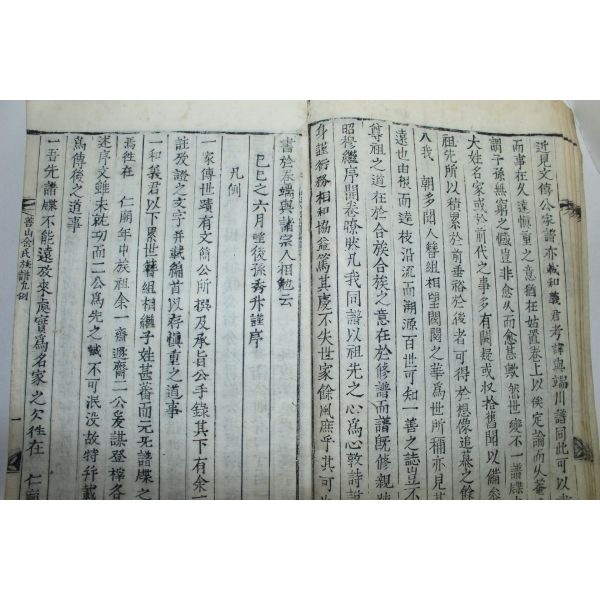 近見文傳公家譜亦載和義君考諱與端川譜同此可以
而事在久遠慎重之意猶在姑置卷上以俟定論而火菴
謂子孫無窮之慟豈非愈久而愈甚歟然世變不一譜牒
大姓名家或於前代之事多有闕疑或収拾舊聞以備參
祖先所以積累於前垂裕於後者可得於想像追慕之餘
八我 朝多聞人簪組相望閥閱之華爲世所稱亦見其
遠也由根而達枝沿流而溯源百世可知一善之誌豈不
尊祖之道在於合族合族之意在於修譜而譜旣修親
昭穆繼序開卷瞭然凡我同譜以祖先之心爲心敦詩
身謹行務相和協益篤其慶不失世家餘風庶乎其可
書於卷端與諸宗人相勉云
己巳之六月 後孫秀升謹序
凡例
一家傳世蹟有文簡公所撰及承旨公手錄其下有余一
註攷證之文字并載編首以存慎重之道事
一和義君以下累世簪組相繼子姓甚蕃而元无譜牒之
焉徃在 仁廟年中族祖余一齋遯齋二公爰謀登梓各
述序文雖未就功而二公爲先之誠不可泯没故特幷載
爲傳後之道事
一吾先譜牒不能遠攷來庾實爲名家之欠徃在 仁廟
善山金氏族譜凡例
一